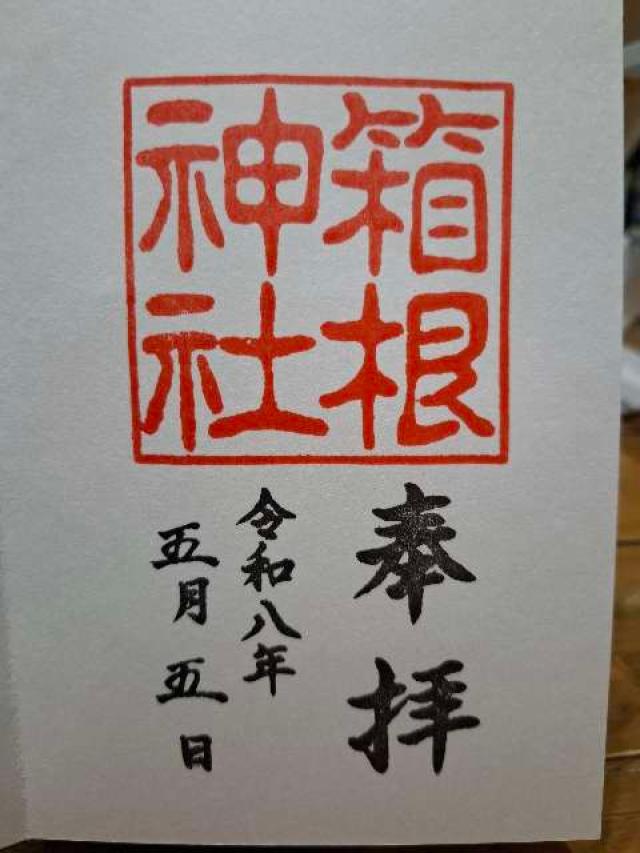 箱根
神社
奉拝
令和八年
五月五日